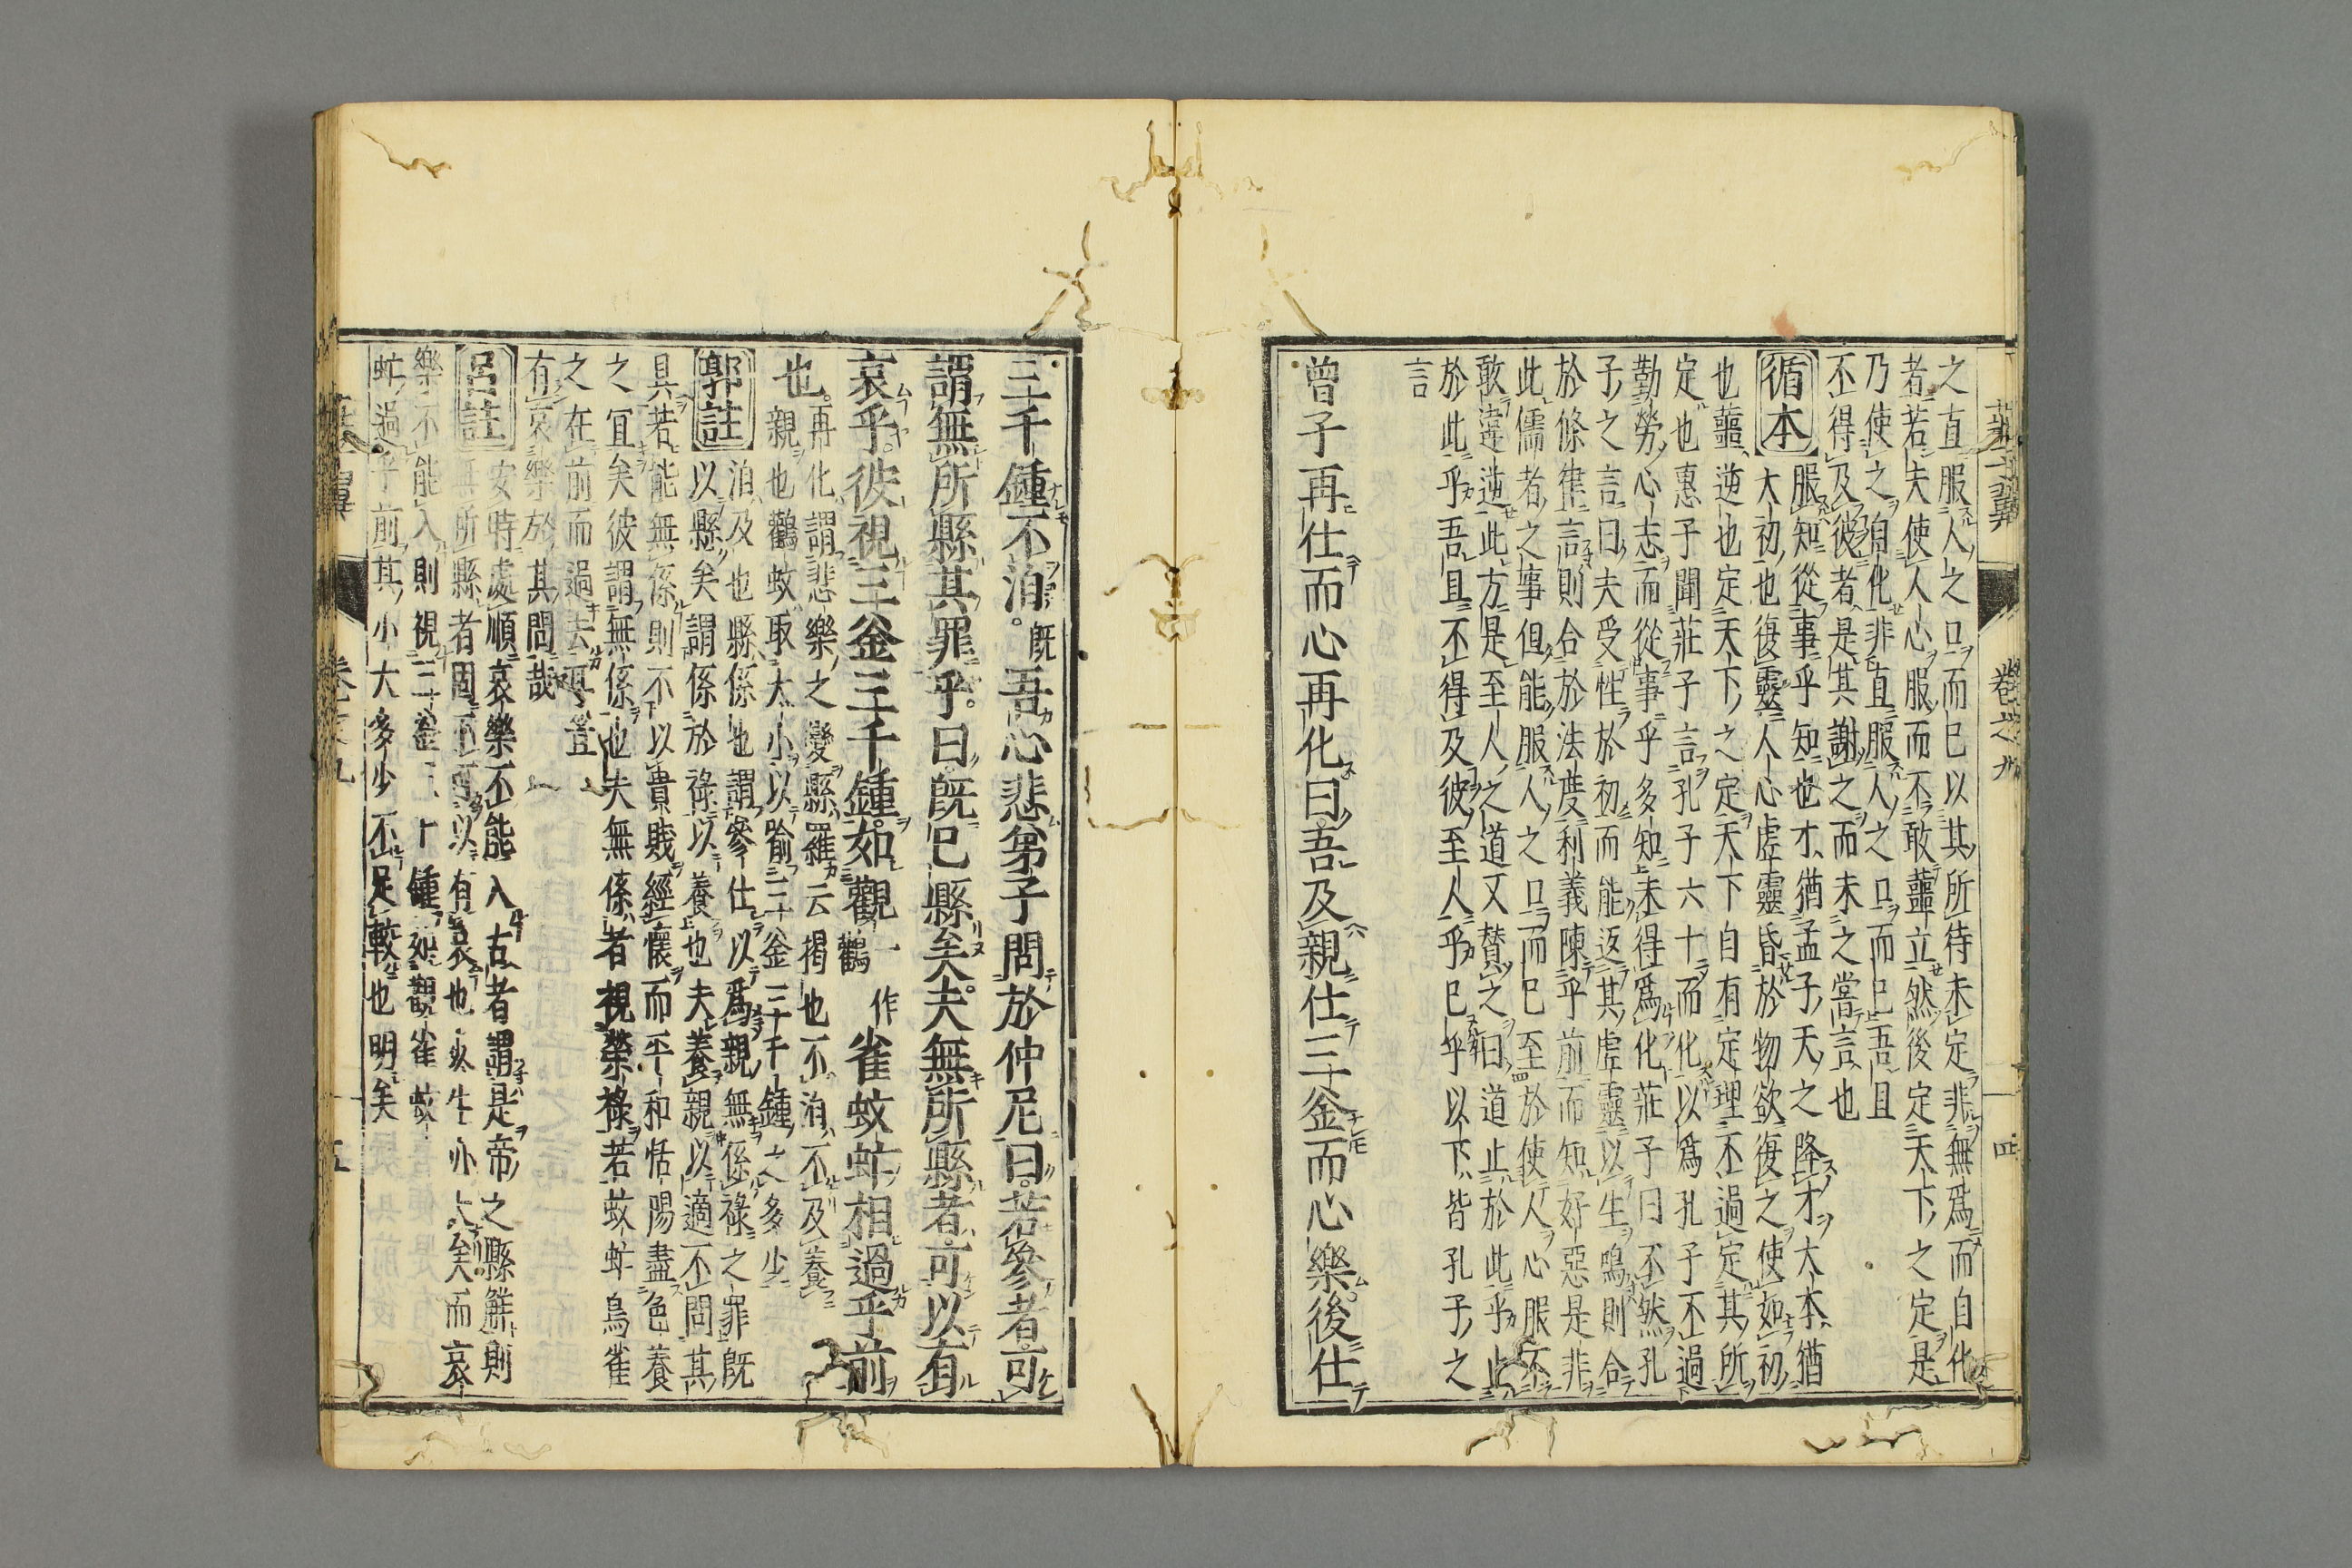 莊子翼 卷之九 四
之直服人之口而已以其所待未定非無爲而自化
者若夫使人心服而不敢蘁立然後定天下之定是
乃使之自化非直服人之口而已吾且
不得及彼者是其謝之而未之嘗言也
循本 服知從事乎知也才猶孟子天之降才大本猶
太初也復靈人心虛靈昏於物欲復之使如初
也蘁逆也定天下之定天下自有定理不過定其所
定也惠子聞莊子言孔子六十而化以爲孔子不過
勤勞心志而從事乎多知未得爲化莊子曰不然孔
子之言曰夫受性於初而能返其虛靈以生鳴則合
於條律言則合於法度利義陳乎前而知好惡是非
此儒者之事但能服人之口而已至於使人心服不
敢違逆此方是至人之道又贊之曰道止於此乎止
於此乎吾且不得及彼至人乎已乎以下皆孔子之
言
曾子再仕而心再化曰吾及親仕三釜而心樂後仕
三千鍾不洎既吾心悲弟子問於仲尼曰若參者可
謂無所縣其罪乎曰既已縣矣夫無所縣者可以有
哀乎彼視三釜三千鍾如觀一作鸛雀蚊虻相過乎前
也 再化謂悲樂之變縣羅云揭也不洎不及養
親也鸛蚊取大小以喻三釜三千鍾之多少
郭註 洎及也縣係也謂參仕以爲親無係祿之罪既
以縣矣謂係於祿以養也夫養親以適不問其
具若能無係則不以貴賤經懷而平和恬暢盡色養
之宜矣彼謂無係也夫無係者視榮祿若蚊虻鳥雀
之在前而過去耳豈
有哀樂於其問哉
呂註 安時處順哀樂不能入古者謂是帝之縣解則
無所縣者固不可以有哀也哀生亦大矣而哀
樂不能入則視三釜三千鍾如觀雀蚊
虻過乎前其小大多少不足較也明矣